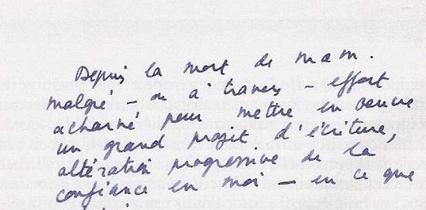 Depuis la mort de mam.
malgré – ou à travers – effort
acharné pour mettre en œuvre
un grand projet d'écriture,
altération progressive de la
confiance en moi – en ce que